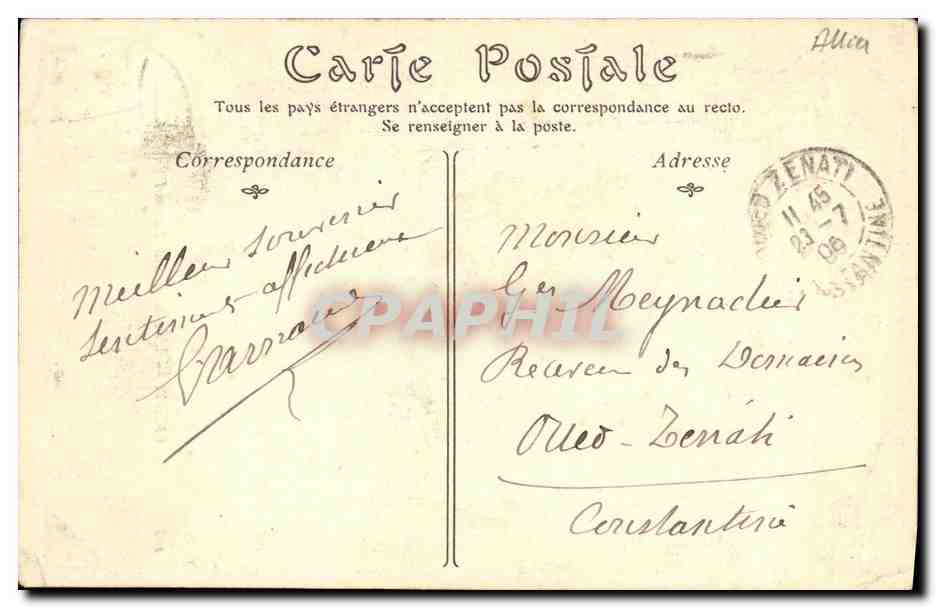 Allier
Carte Postale
Tous les pays étrangers n'acceptent pas la correspondance au recto.
Se renseigner à la poste.
Correspondance
Adresse
OUED ZENATI
11 45
23 - 7
06
CONSTANTINE
Meilleur souvenir
sentiments affectueux
Monsieur
Ges Meynadier
Receveur des Domaines
Oued-Zenati
Constantine
CPAPHIL